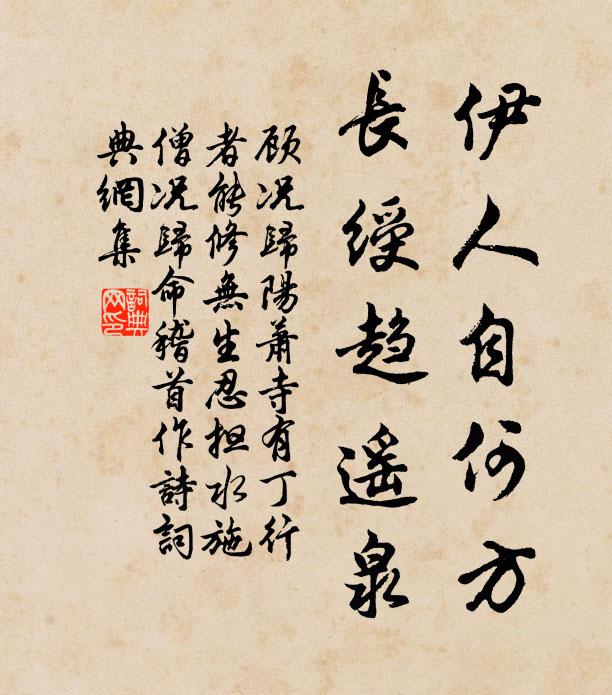 伊人自何方
長綬趨遙泉
顾况歸陽蕭寺有丁行
者能修無生忍担水施
僧况歸命稽首作詩詞
典網集
詞典
网印